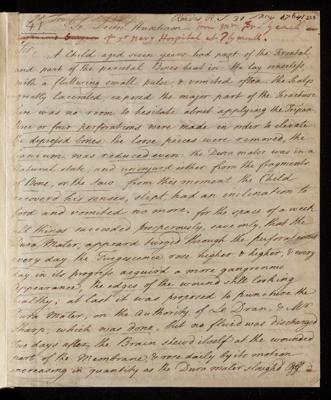 Read Oct. 31
47 To John Huxham from Mr. Fra. Geach
surgeon of ye Navy Hospital at Plymouth
Sir.
A Child aged seven years had part of the Frontal,
and part of the parietal Bones beat in. He lay insensible,
with a fluttering small pulse & vomited often. the scalp
mostly lacerated exposed the major part of the Fracture
there was no room to hesitate about applying the Trepan
one or four perforations were made in order to elevate
the depressed bones the loose pieces were removed, the
cranium was reduced even. the Dura mater was in a
natural state, and uninjured either from the fragments
of Bone, or the Saw from this moment the Child
recovered his senses, slept had an inclination to
food and vomited no more. for the space of a week
all things succeeded prosperously, save only, that the
Dura Mater, appeard turgid through the perforations
every day the Turgescence rose higher & higher, & every
day in its progress acquired a more gangrenous
appearance, the edges of the wound still looking
healthy; at last it was proposed to puncture the
Dura Mater, on the Authority of Le Dran, & Mr
Sharp, which was done. but no fluid was discharged
Two days after, the Brain shewd itself at the wounded
part of the Membrane, & rose daily by its motion
increasing in quantity as the Dura mater sloughd off